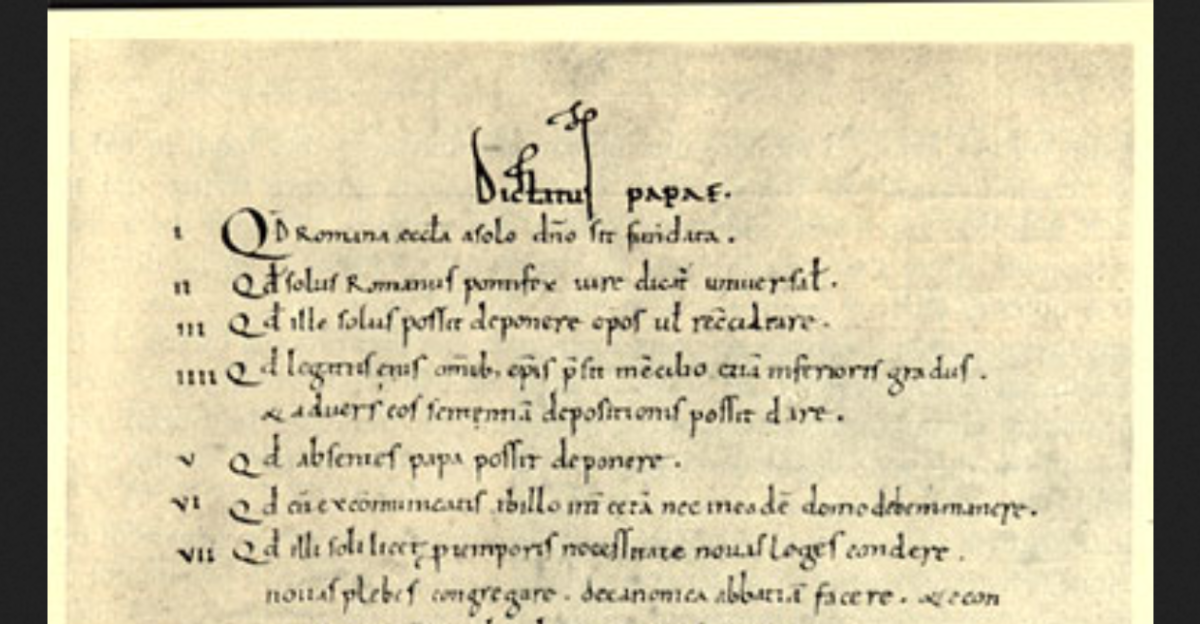 Dictatus papae.
i Qd Romana eccła a solo dño sit fundata.
ii Qđ solus Romanus pontifex iure dicat̄ universał.
iii Qđ ille solus possit deponere epōs ut reconciliare.
iiii Qđ legatus eius omīb; ep̄is p̄sit in c̄cilio etiā inferioris gradus.
& advers eos sententiā depositionis possit dare.
v Qđ absentes papa possit deponere.
vi Qđ cū excōmunicatis ab illo int̄ cetā nec in eadē domo debem manere.
vii Qđ illi soli licet p temporis necessitate novas leges condere.
novas plebes congregare. de canonica abbatiā facere. & e con